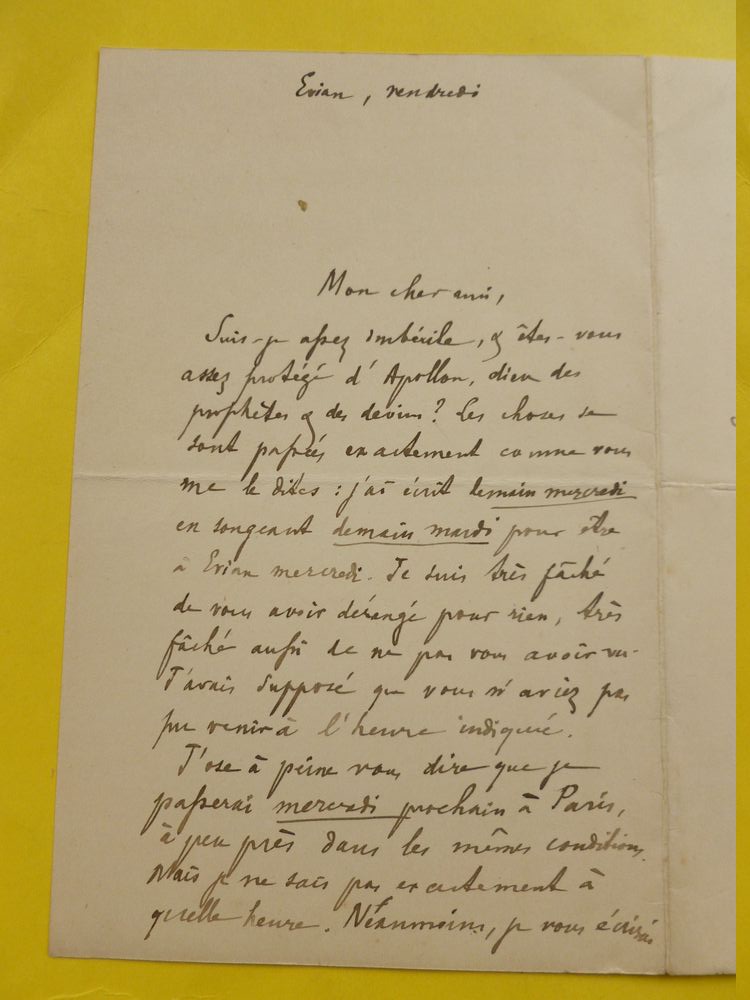 Evian, vendredi
Mon cher ami,
Suis-je assez imbécile, & êtes-vous
assez protégé d'Apollon, dieu des
prophètes & des devins ? Les choses se
sont passées exactement comme vous
me le dites : j'ai écrit demain mercredi
en songeant demain mardi pour être
à Evian mercredi. Je suis très fâché
de vous avoir dérangé pour rien, très
fâché aussi de ne pas vous avoir vu.
J'avais supposé que vous n'aviez pas
pu venir à l'heure indiquée.
J'ose à peine vous dire que je
passerai mercredi prochain à Paris,
à peu près dans les mêmes conditions.
Mais je ne sais pas exactement à
quelle heure. Néanmoins, je vous écrirai